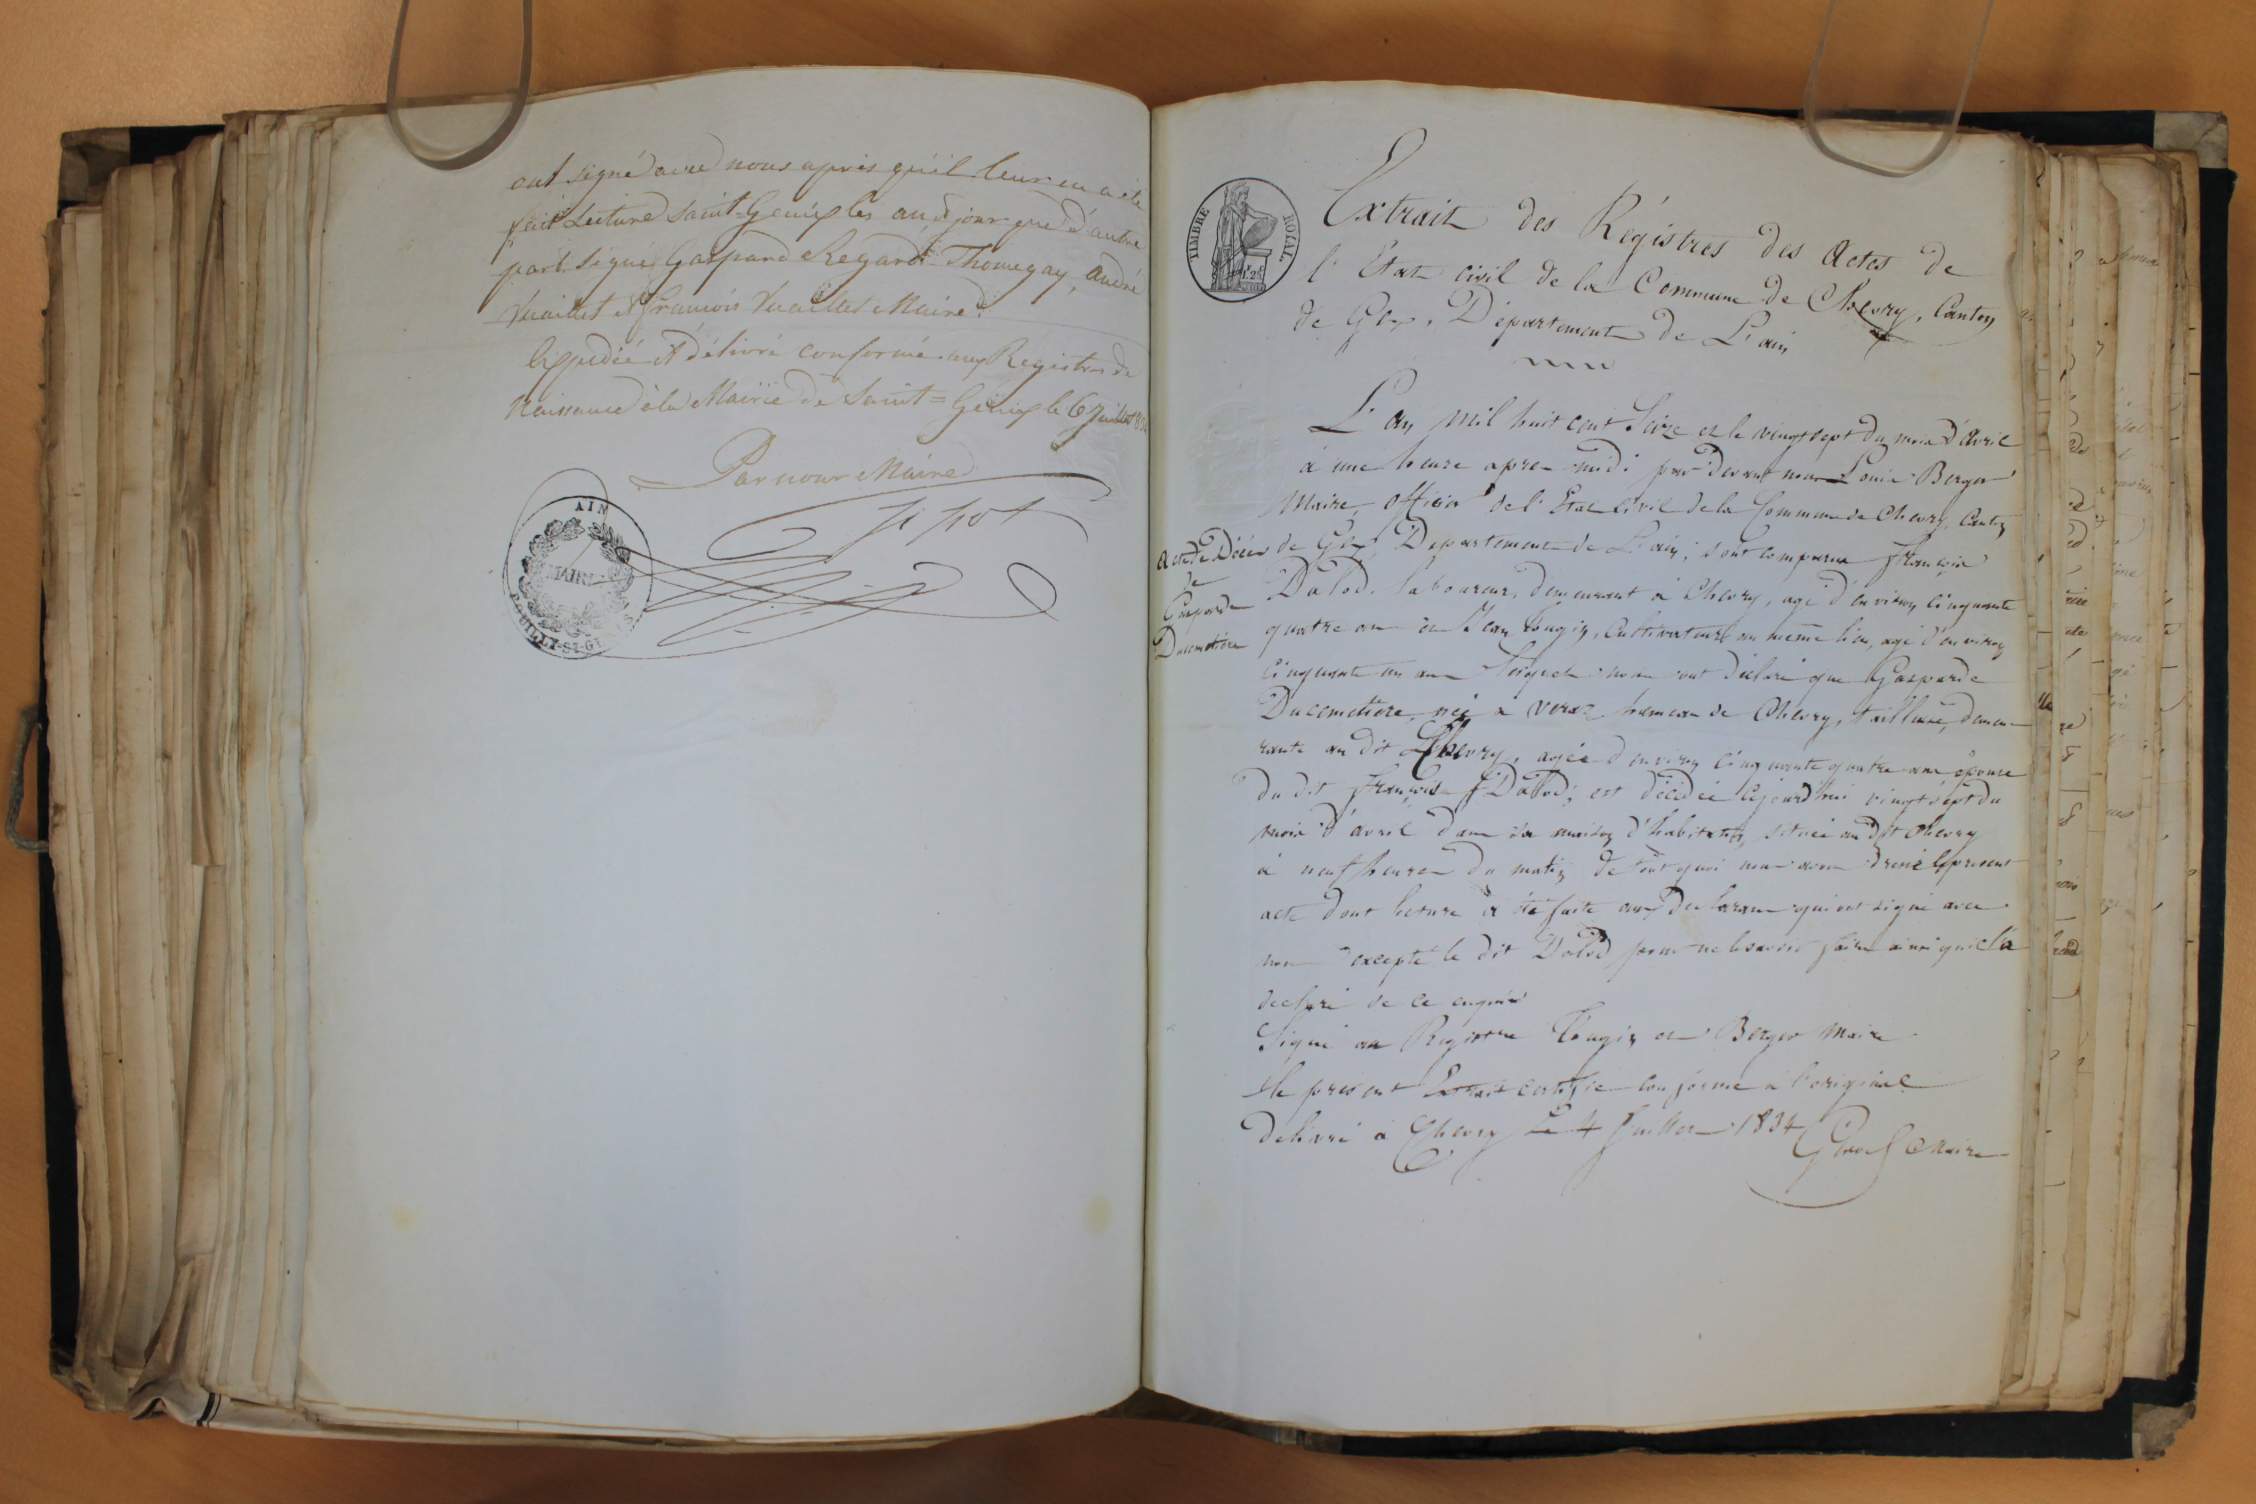 ont signé avec nous après qu'il leur en a été
fait Lecture Saint-Genix les an & jour que d'autre
part. signé Gaspard Regard Thomegay, André
Vuaillet & françois Vuaillet Maire.
Expédié & délivré conforme aux Registres de
Naissance à la Mairie de Saint=Genix le 6 Juillet
Par nous Maire
AIN
MAIRIE
POUILLY-St-G
TIMBRE ROYAL
Extrait des Régistres des Actes de
l'Etat civil de la Commune de Chevry, Canton
de Gex, Département de L'ain
L'an mil huit cent Seize et le vingt sept du mois d'Avril
à une heure apres midi par devant nous Louis Berger
Maire, officier de l'Etat Civil de la Commune de Chevry, Canton
de Gex, Département de L'ain, sont comparus françois
Acte de Décès
de
Gasparde
Ducimetière
Dalod, laboureur, demeurant à Chevry, agé d'environ cinquante
quatre ans et Jean Tougin, Cultivateur au même lieu, agé d'environ
cinquante un ans lesquels nous ont déclaré que Gasparde
Ducimetière née à Veraz hameau de Chevry, tailleuse, demeu-
rante au dit Chevry, agée d'environ cinquante quatre ans épouse
du dit françois Dalod, est décédée cejourd'hui vingt sept du
mois d'avril dans sa maison d'habitation, située au dit Chevry
à neuf heures du matin de tout quoi nous avons dressé le présent
acte dont lecture a été faite aux déclarans qui ont signé avec
nous excepté le dit Dalod pour ne le savoir faire ainsi qu'il l'a
declaré de ce enquis
Signé au Registre Tougin et Berger Maire
Le présent Extrait certifié conforme à l'original
delivré à Chevry Le 4 Juillet 1834 Maire